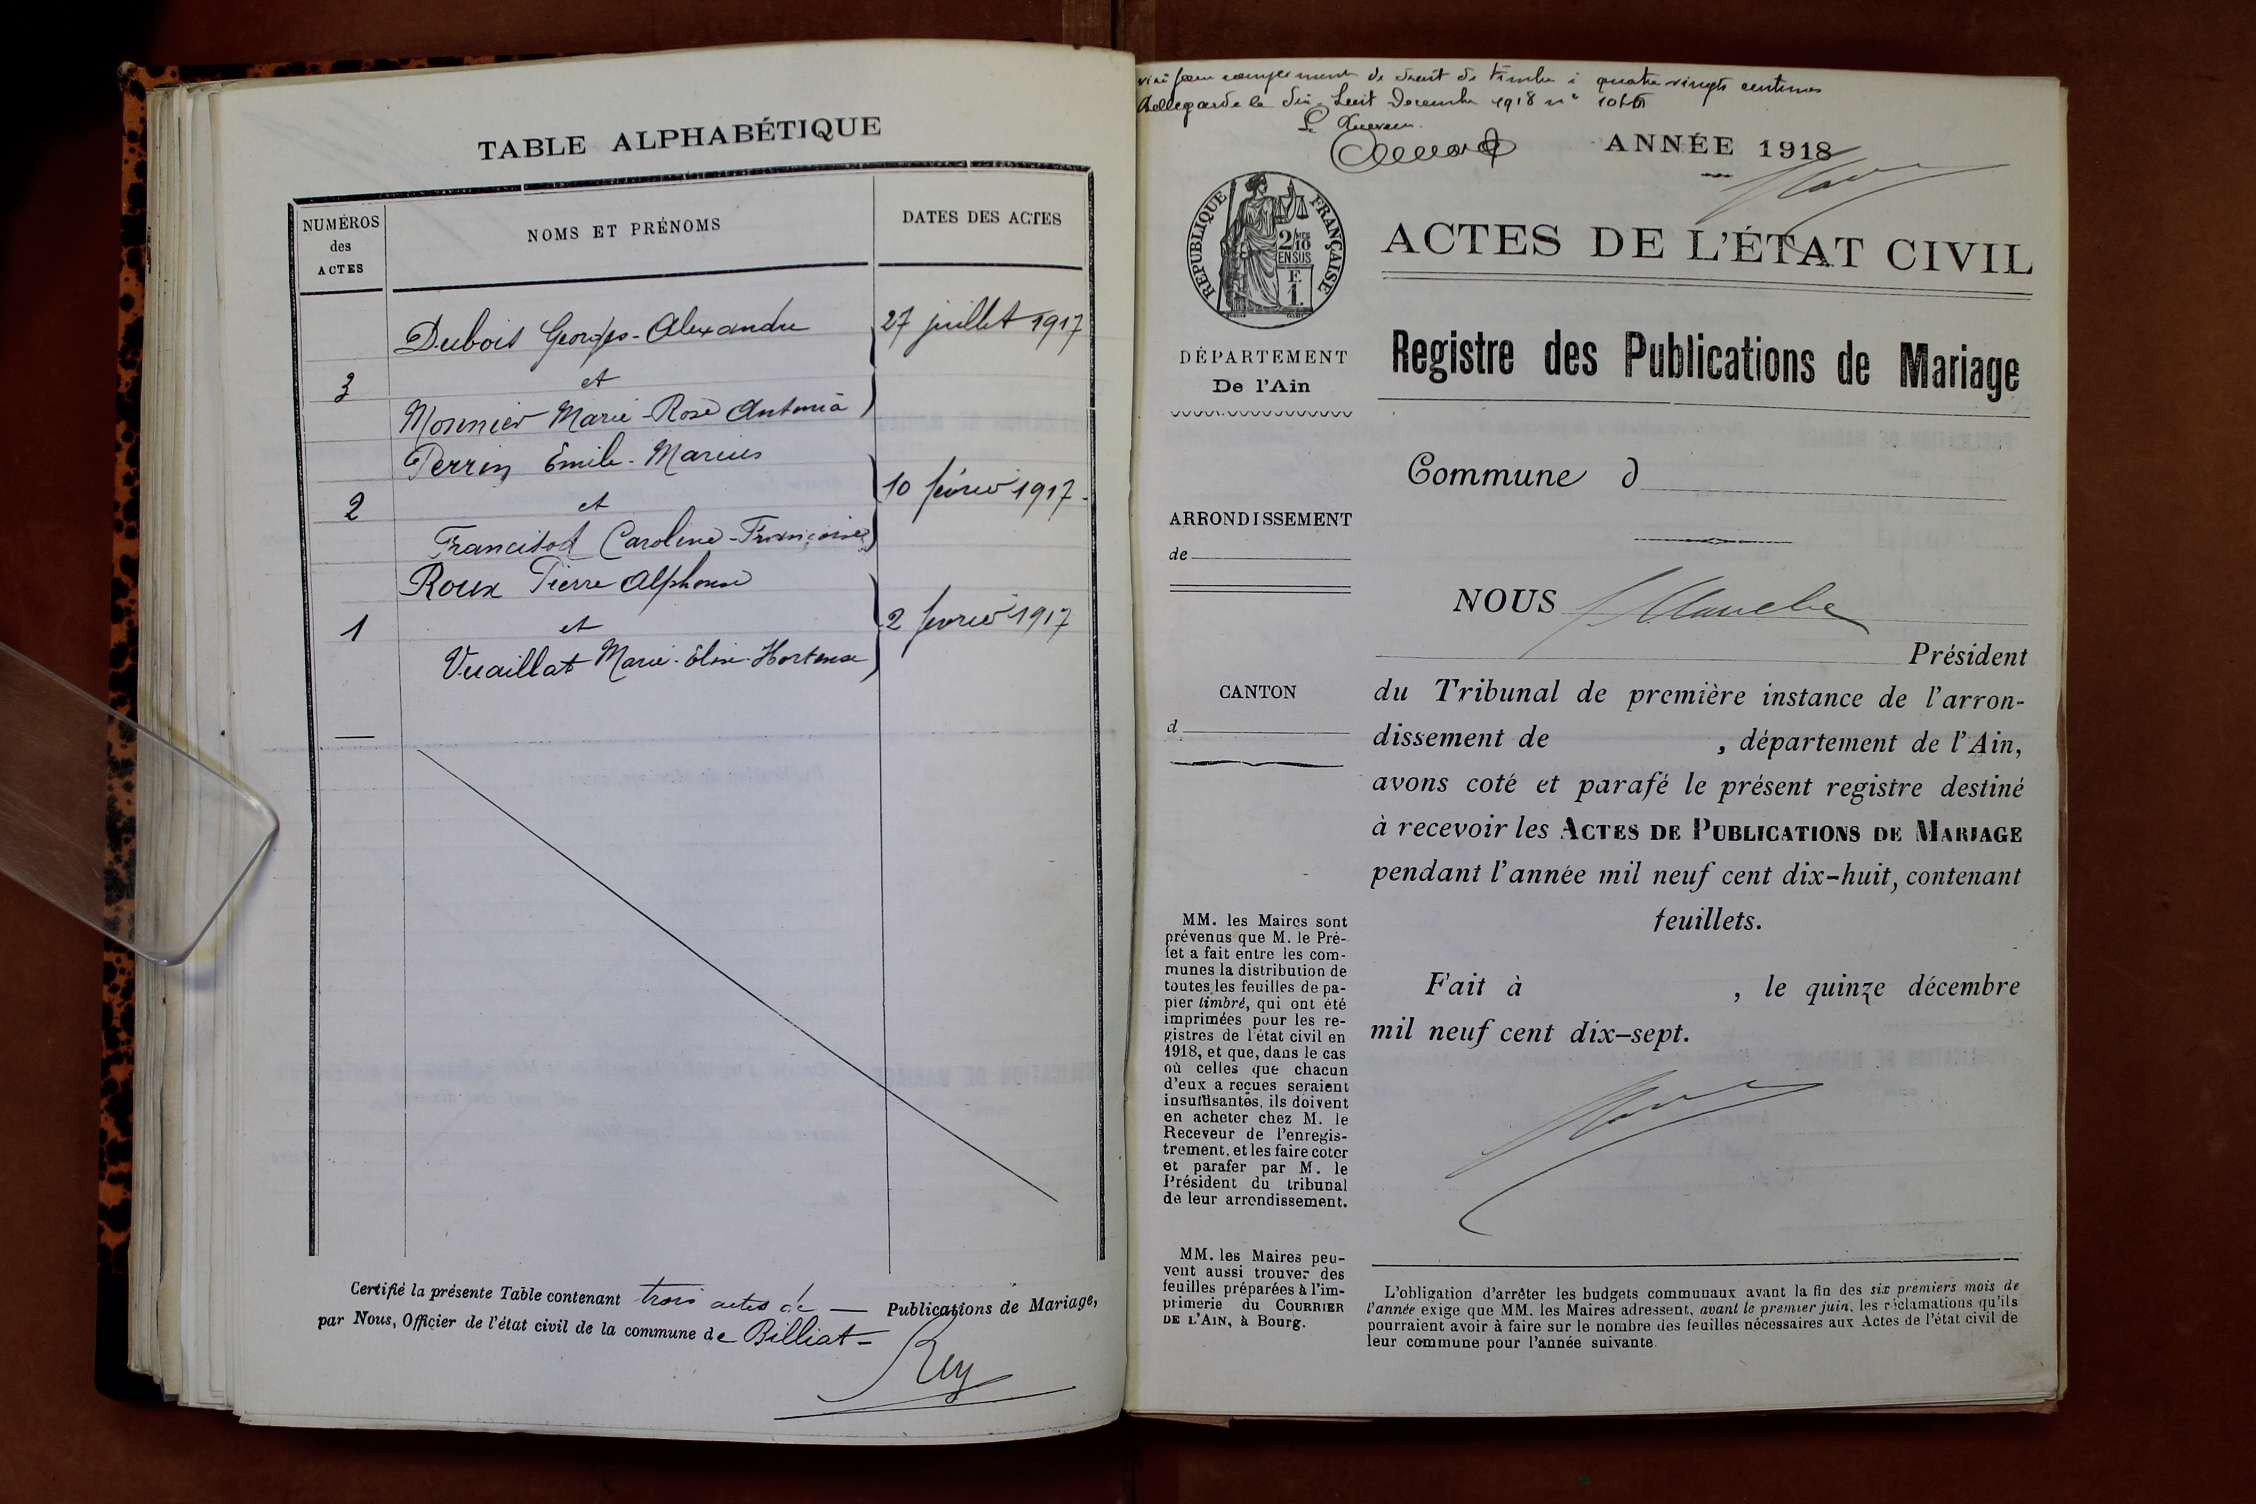 TABLE ALPHABÉTIQUE
NUMÉROS
des
ACTES
NOMS ET PRÉNOMS
DATES DES ACTES
Dubois Georges-Alexandre
27 juillet 1917
3
et
Monnier Marie-Rose Antonia
Perrin Emile-Marius
2
et
10 février 1917
Francisod Caroline-Françoise
Roux Pierre Alphonse
1
et
2 février 1917
Vuaillat Marie-Elise-Hortense
Certifié la présente Table contenant trois actes de — Publications de Mariage,
par Nous, Officier de l'état civil de la commune de Billiat
Rey
visé pour complément de droit de timbre à quatre vingts centimes
Bellegarde le dix huit Décembre 1918 n°
Le Receveur
ANNÉE 1918
RÉPUBLIQUE FRANÇAISE
2/10
EN SUS
F.
1.
ACTES DE L'ÉTAT CIVIL
Registre des Publications de Mariage
DÉPARTEMENT
De l'Ain
Commune d
ARRONDISSEMENT
de
NOUS
Président
CANTON
d
du Tribunal de première instance de l'arron-
dissement de , département de l'Ain,
avons coté et parafé le présent registre destiné
à recevoir les ACTES DE PUBLICATIONS DE MARIAGE
pendant l'année mil neuf cent dix-huit, contenant
feuillets.
Fait à , le quinze décembre
mil neuf cent dix-sept.
MM. les Maires sont
prévenus que M. le Pré-
fet a fait entre les com-
munes la distribution de
toutes les feuilles de pa-
pier timbré, qui ont été
imprimées pour les re-
gistres de l'état civil en
1918, et que, dans le cas
où celles que chacun
d'eux a reçues seraient
insuffisantes, ils doivent
en acheter chez M. le
Receveur de l'enregis-
trement, et les faire coter
et parafer par M. le
Président du tribunal
de leur arrondissement.
MM. les Maires peu-
vent aussi trouver des
feuilles préparées à l'im-
primerie du COURRIER
DE L'AIN, à Bourg.
L'obligation d'arrêter les budgets communaux avant la fin des six premiers mois de
l'année exige que MM. les Maires adressent, avant le premier juin, les réclamations qu'ils
pourraient avoir à faire sur le nombre des feuilles nécessaires aux Actes de l'état civil de
leur commune pour l'année suivante.